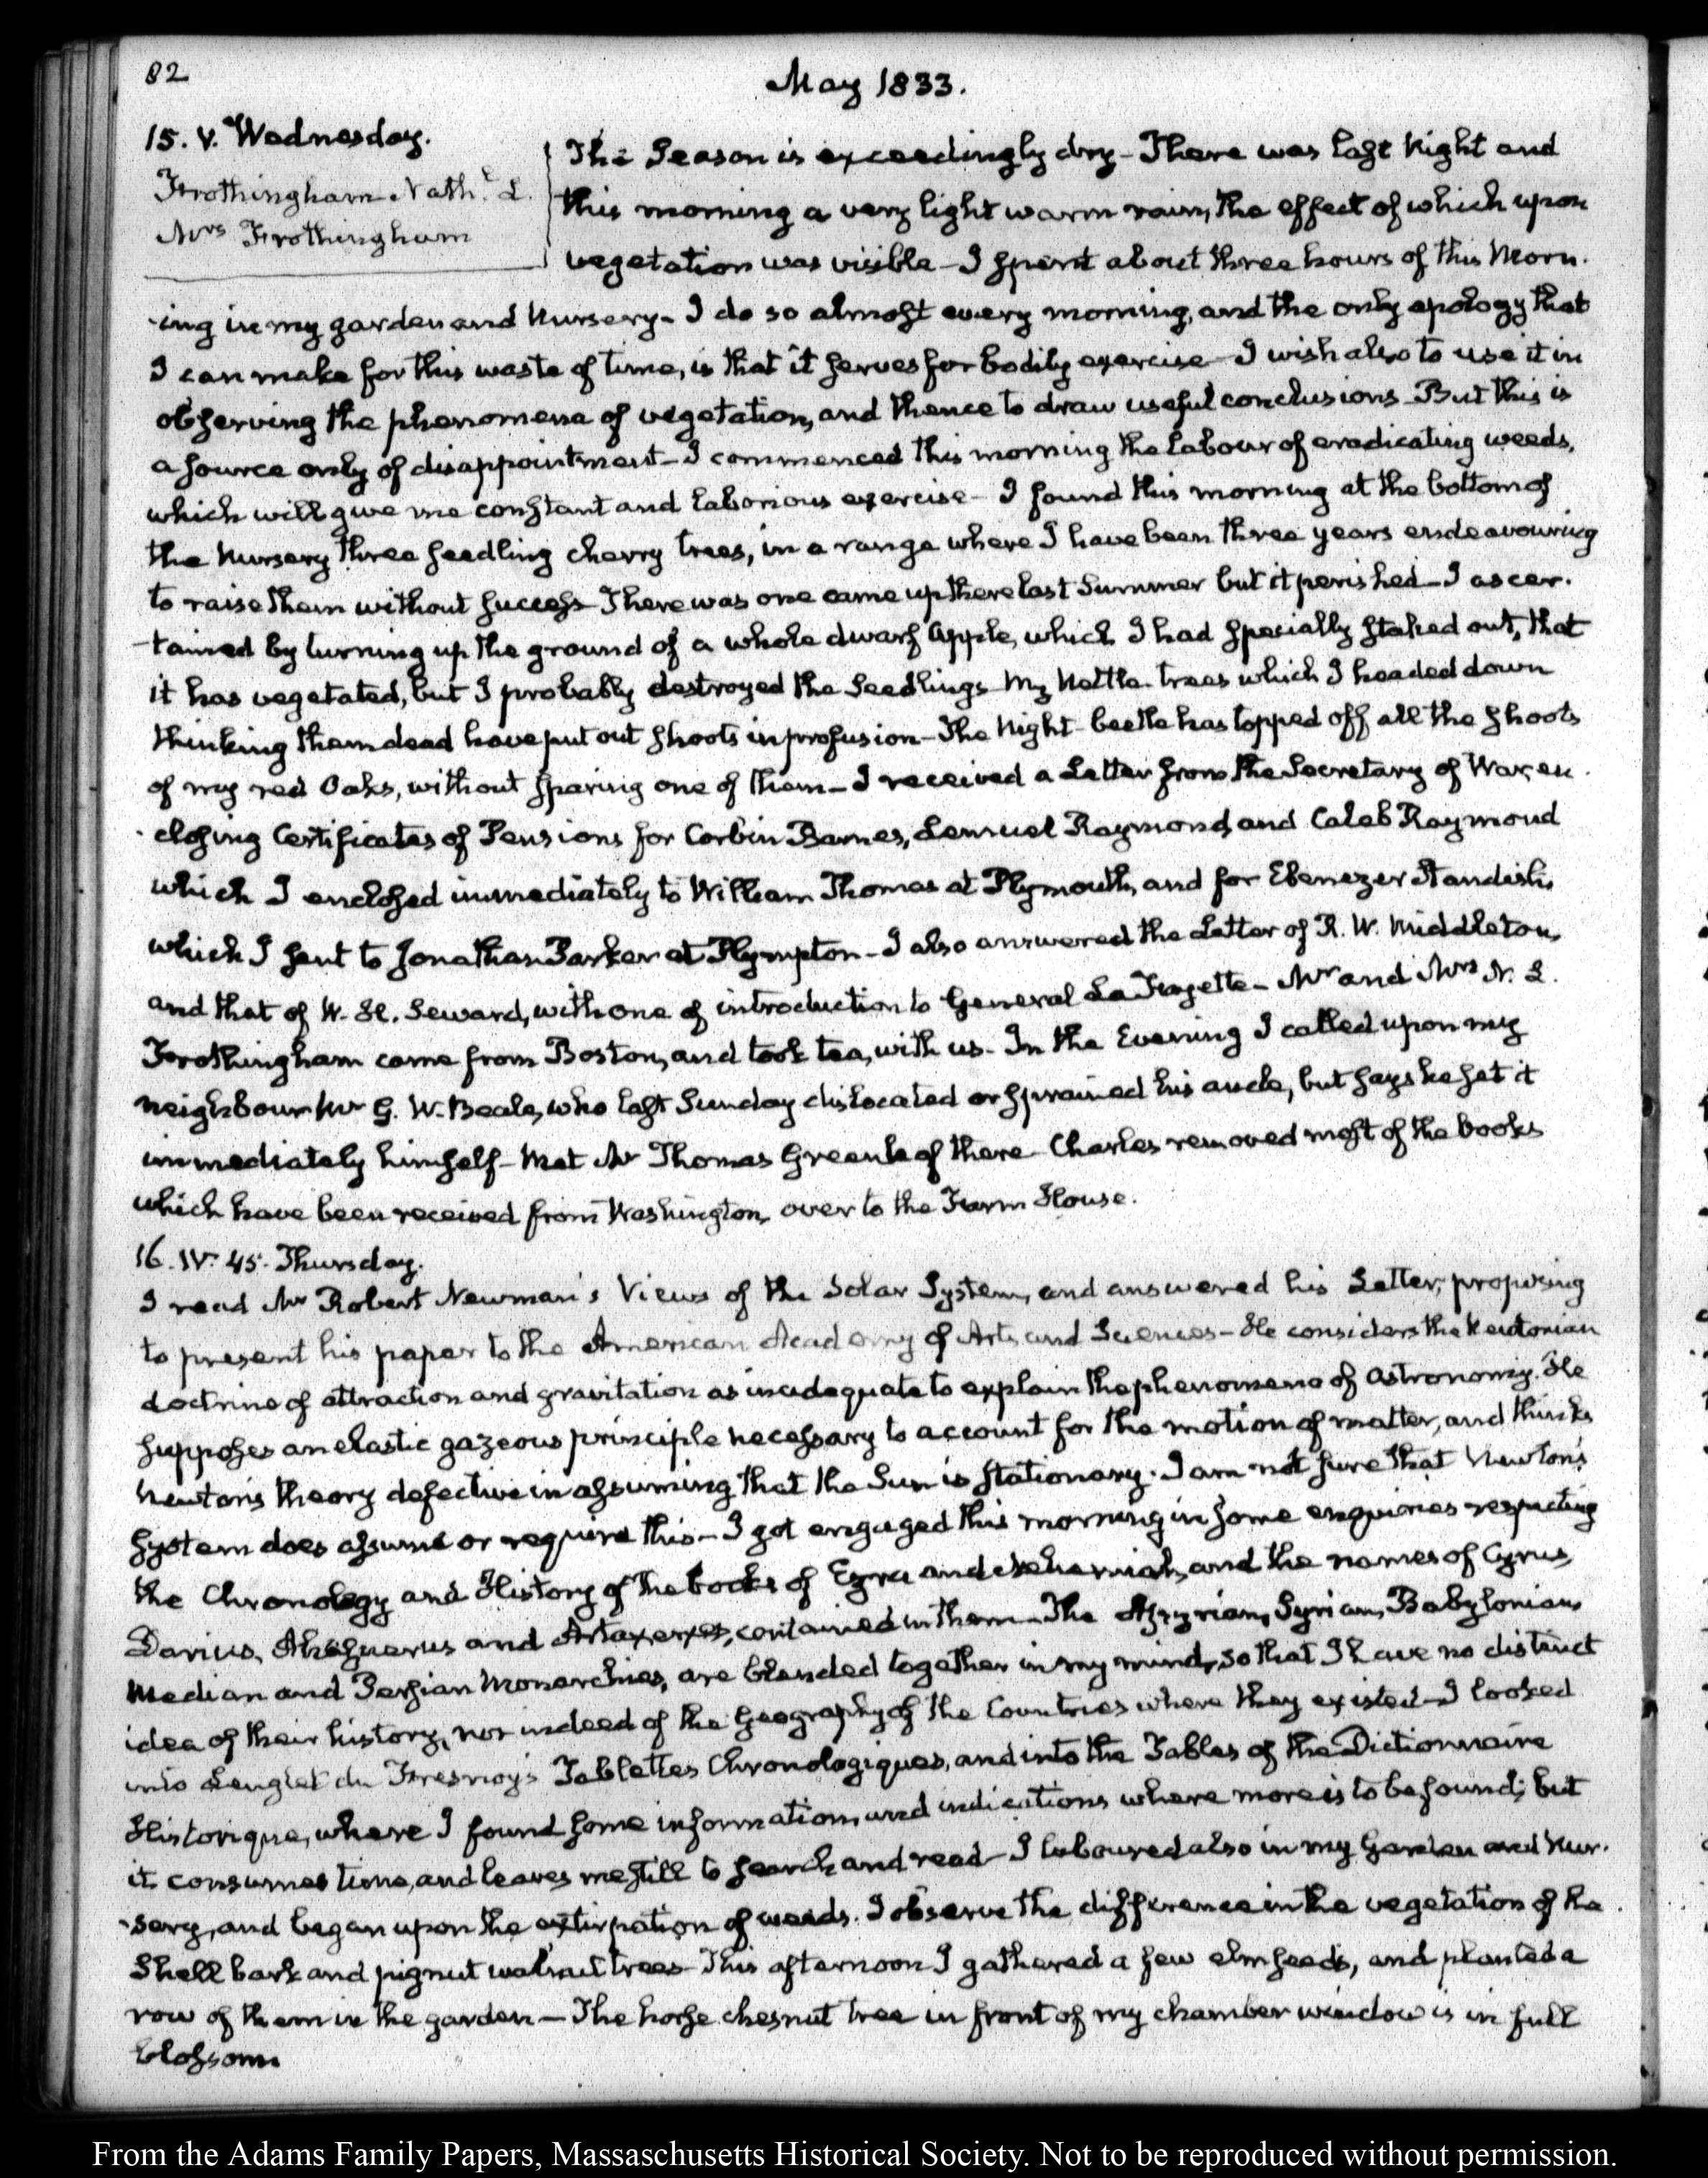 82
May 1833.
15. V. Wednesday.
Frothingham Nathl. L.
Mrs Frothingham
The Season is exceedingly dry – There was last Night and
this morning a very light warm rain, the effect of which upon
vegetation was visible – I spent about three hours of this Morn-
-ing in my garden and Nursery – I do so almost every morning, and the only apology that
I can make for this waste of time, is that it serves for bodily exercise – I wish also to use it in
observing the phenomena of vegetation, and thence to draw useful conclusions – But this is
a source only of disappointment – I commenced this morning the labour of eradicating weeds,
which will give me constant and laborious exercise – I found this morning at the bottom of
the Nursery three seedling cherry trees, in a range where I have been three years endeavouring
to raise them without success – There was one came up there last Summer but it perished – I ascer-
-tained by turning up the ground of a whole dwarf apple, which I had specially staked out, that
it has vegetated, but I probably destroyed the seedlings – My Nettle trees which I headed down
thinking them dead have put out shoots in profusion – The Night-beetle has topped off all the shoots
of my red Oaks, without sparing one of them – I received a Letter from the Secretary of War, en-
-closing Certificates of Pensions for Corbin Barnes, Lemuel Raymond, and Caleb Raymond
which I enclosed immediately to William Thomas at Plymouth, and for Ebenezer Standish,
which I sent to Jonathan Parker at Plympton – I also answered the Letter of R. W. Middleton,
and that of W. H. Seward, with one of introduction to General La Fayette – Mr and Mrs N. L.
Frothingham came from Boston, and took tea, with us – In the Evening I called upon my
neighbour Mr G. W. Beale, who last Sunday dislocated or sprained his ancle, but says he set it
immediately himself – Met Mr Thomas Greenleaf there – Charles removed most of the books
which have been received from Washington, over to the Farm House.
16. IV. 45. Thursday.
I read Mr Robert Newman's Views of the Solar System, and answered his Letter, proposing
to present his paper to the American Academy of Arts and Sciences – He considers the Newtonian
doctrine of attraction and gravitation as inadequate to explain the phenomena of astronomy. He
supposes an elastic gazeous principle necessary to account for the motion of matter, and thinks
Newton's theory defective in assuming that the Sun is stationary. I am not sure that Newton's
System does assume or require this – I got engaged this morning in some enquiries respecting
the Chronology and History of the books of Ezra and Nehemiah, and the names of Cyrus,
Darius, Ahasuerus and Artaxerxes, contained in them – The Assyrian, Syrian, Babylonian,
Median and Persian Monarchies, are blended together in my mind, so that I have no distinct
idea of their history, nor indeed of the Geography of the Countries where they existed – I looked
into Lenglet du Fresnoy's Tablettes Chronologiques, and into the Tables of the Dictionnaire
Historique, where I found some information, and indications where more is to be found; but
it consumes time, and leaves me still to search and read – I laboured also in my Garden and Nur-
-sery, and began upon the extirpation of weeds. I observe the difference in the vegetation of the
Shell bark and pignut walnut trees – This afternoon I gathered a few elm seeds, and planted a
row of them in the garden – The horse chesnut tree in front of my chamber window is in full
blossom
From the Adams Family Papers, Massachusetts Historical Society. Not to be reproduced without permission.